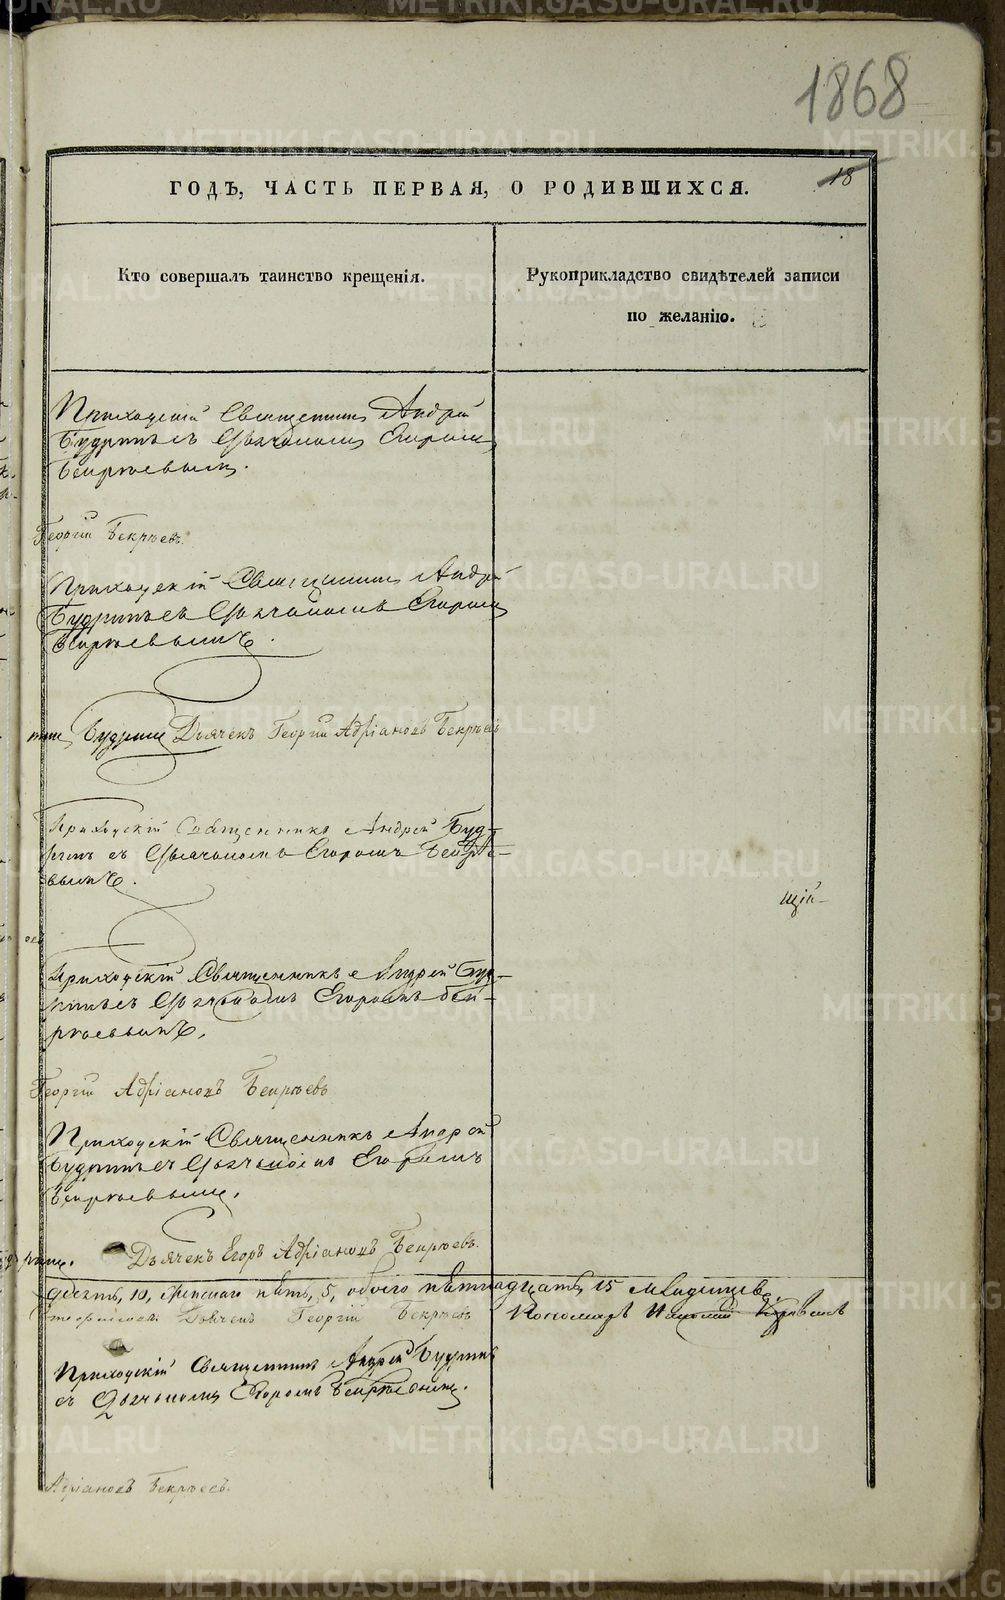 METRIKI.GASO-URAL.RU
1868
18
ГОДЪ, ЧАСТЬ ПЕРВАЯ, О РОДИВШИХСЯ.
Кто совершалъ таинство крещенія.
Рукоприкладство свидѣтелей записи
по желанію.
Приходскій Священникъ Андрей
Будринъ съ Дьячкомъ Егоромъ
Бекрѣевымъ.
Георгій Бекрѣевъ.
Приходскій Священникъ Андрей
Будринъ съ Дьячкомъ Егоромъ
Бекрѣевымъ.
Будринъ Дьячекъ Георгій Адріановъ Бекрѣевъ
Приходскій Священникъ Андрей Буд-
ринъ съ Дьячкомъ Егоромъ Бекрѣ-
вымъ.
щій-
Приходскій Священникъ Андрей Буд-
ринъ съ Дьячкомъ Егоромъ Бек-
рѣевымъ.
Георгій Адріановъ Бекрѣевъ
Приходскій Священникъ Андрей
Будринъ съ Дьячкомъ Егоромъ
Бекрѣевымъ.
Дьячекъ Егоръ Адріановъ Бекрѣевъ.
десять, 10, женскаго пять, 5, обоего пятнадцать 15 младенцевъ.
Дьячекъ Георгій Бекрѣевъ Пономарь
Приходскій Священникъ Андрей Будринъ
съ Дьячкомъ Егоромъ Бекрѣевымъ.
Адріановъ Бекрѣевъ.